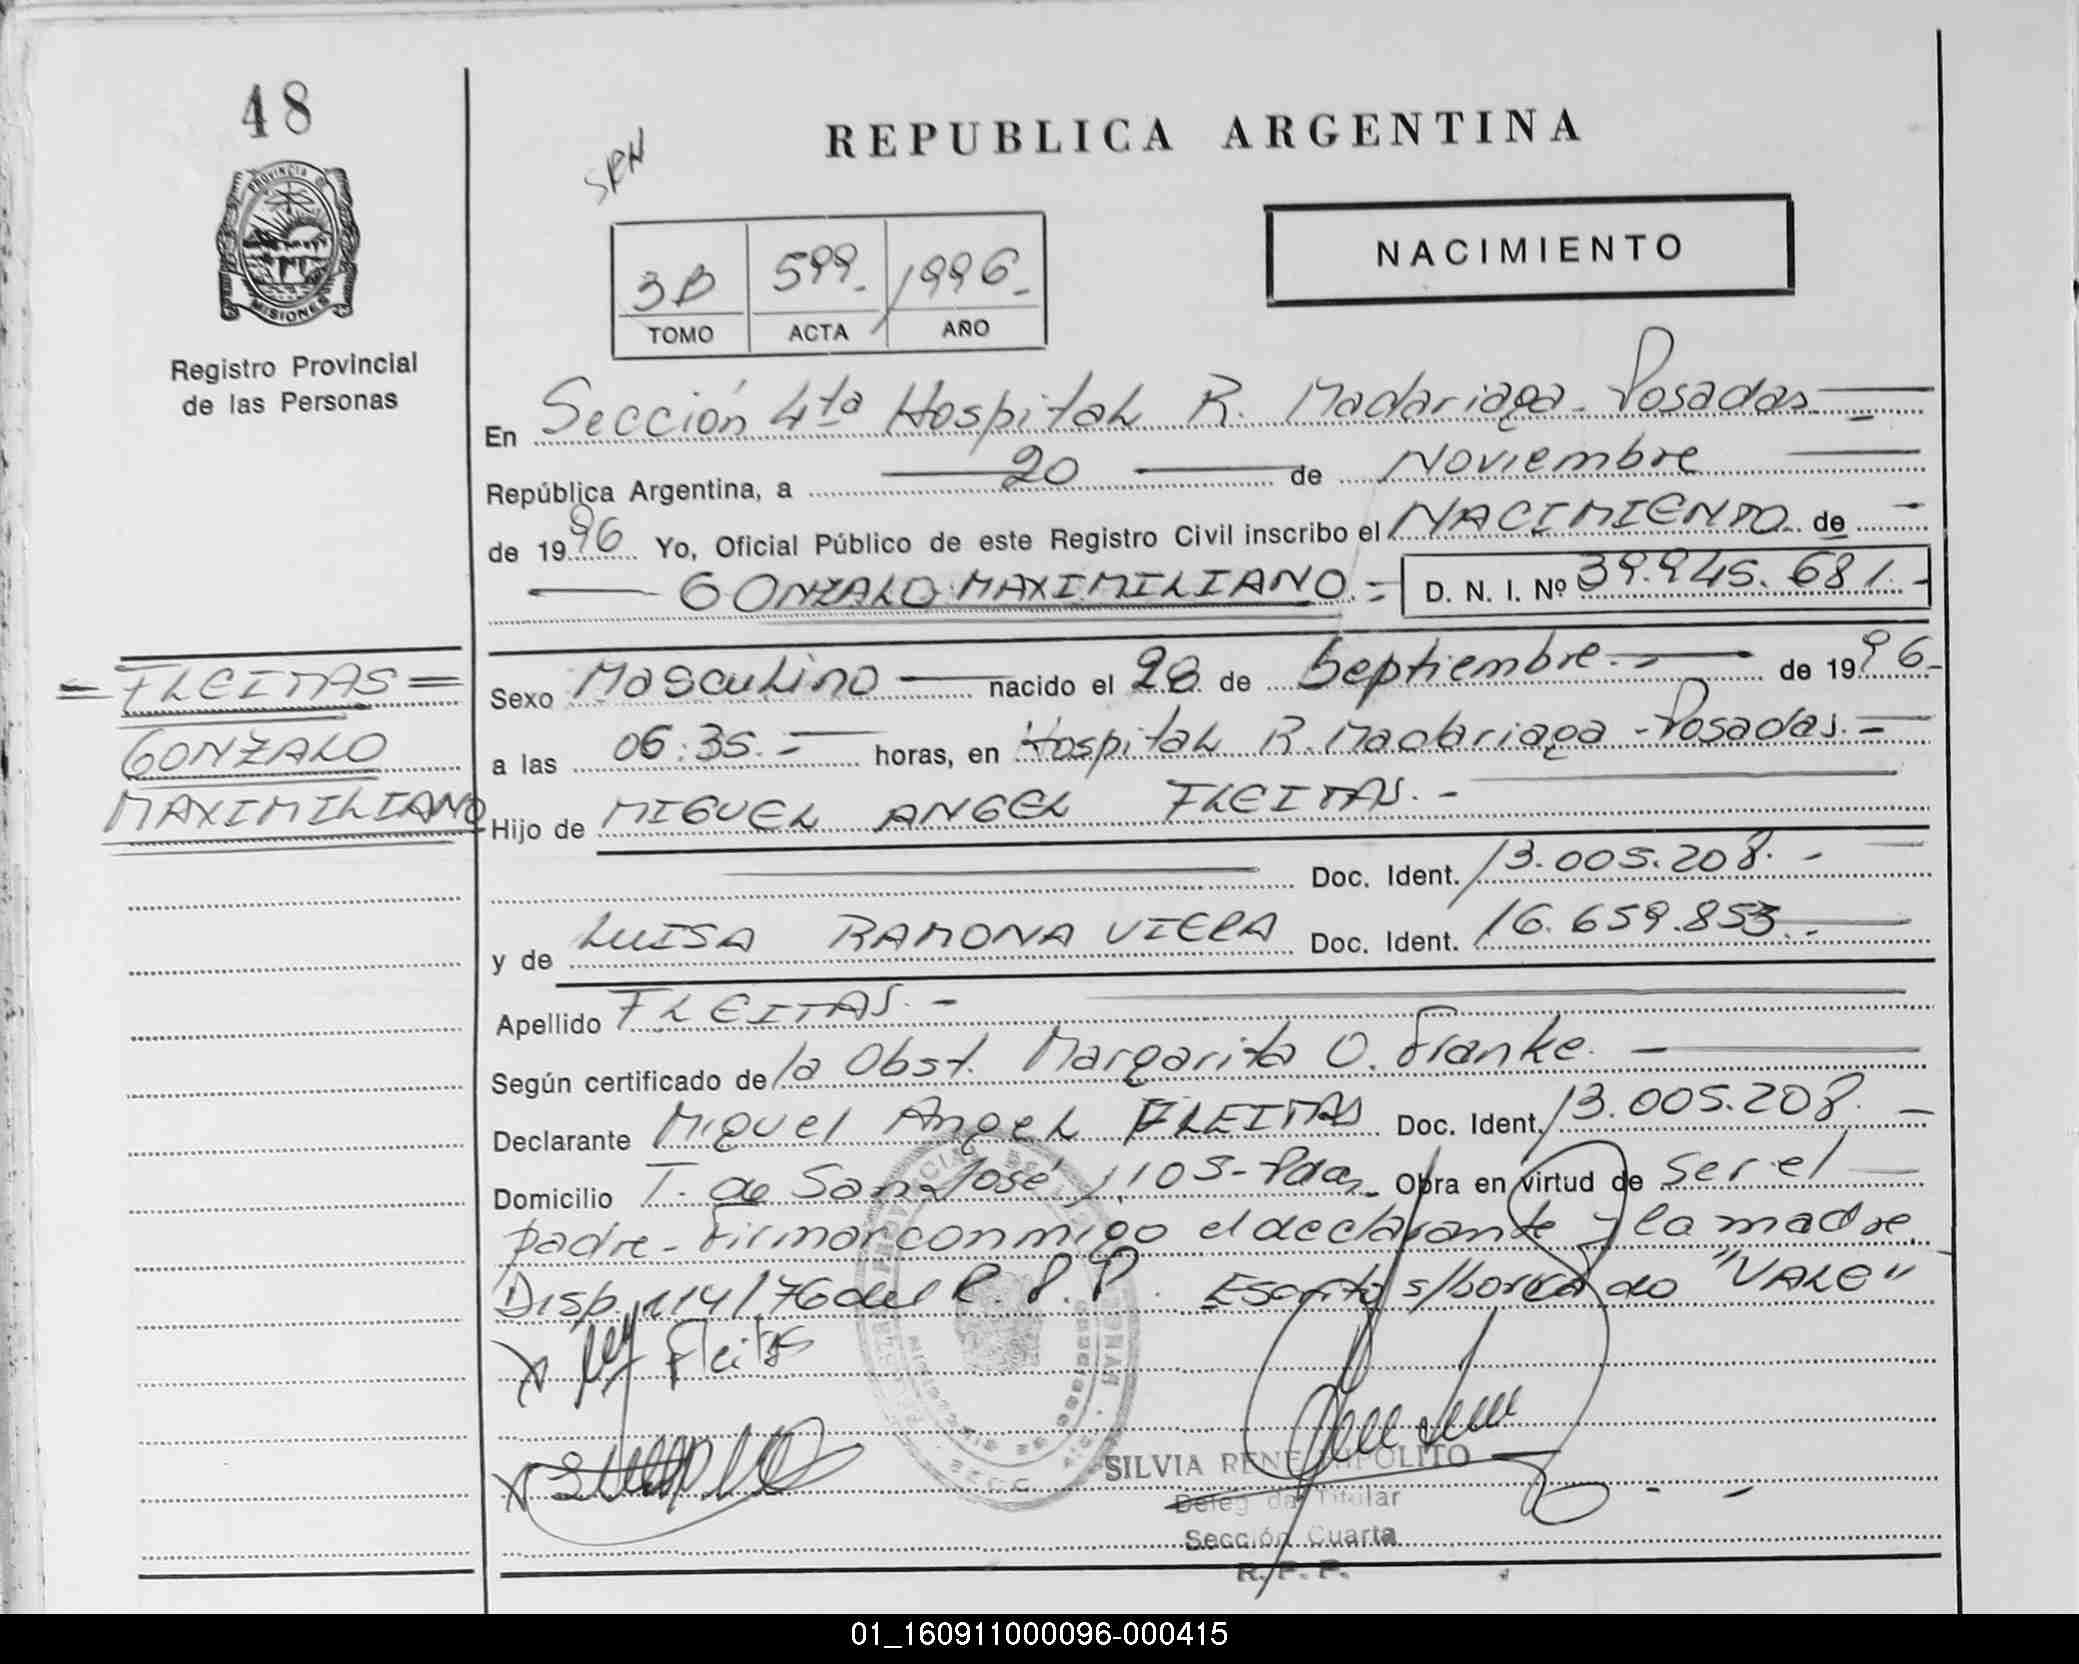 48
PROVINCIA D
MISIONES
Registro Provincial
de las Personas
SRH
REPUBLICA ARGENTINA
NACIMIENTO
3B 599.- 1996.-
TOMO ACTA AÑO
En Sección 4ta Hospital R. Madariaga - Posadas.-
República Argentina, a 20 de Noviembre
de 1996 Yo, Oficial Público de este Registro Civil inscribo el NACIMIENTO de -
GONZALO MAXIMILIANO.= D. N. I. Nº 39.945.681.-
= FLEITAS =
GONZALO
MAXIMILIANO
Sexo Masculino nacido el 28 de Septiembre.- de 1996.-
a las 06:35.- horas, en Hospital R. Madariaga - Posadas.-
Hijo de MIGUEL ANGEL FLEITAS.-
Doc. Ident. 13.005.208.-
y de LUISA RAMONA VIERA Doc. Ident. 16.659.853.-
Apellido FLEITAS.-
Según certificado de la Obst. Margarita O. Franke.-
Declarante Miguel Angel FLEITAS Doc. Ident. 13.005.208.-
Domicilio T. de San José 1105-Pdas.- Obra en virtud de ser el
padre - Firman conmigo el declarante y la madre.
Disp. 114/76 del R. P. P. Escrito s/borrado "VALE"
X Fleitas
X
SILVIA RENE HIPOLITO
Delegada Titular
Sección Cuarta
R. P. P.
01_160911000096-000415